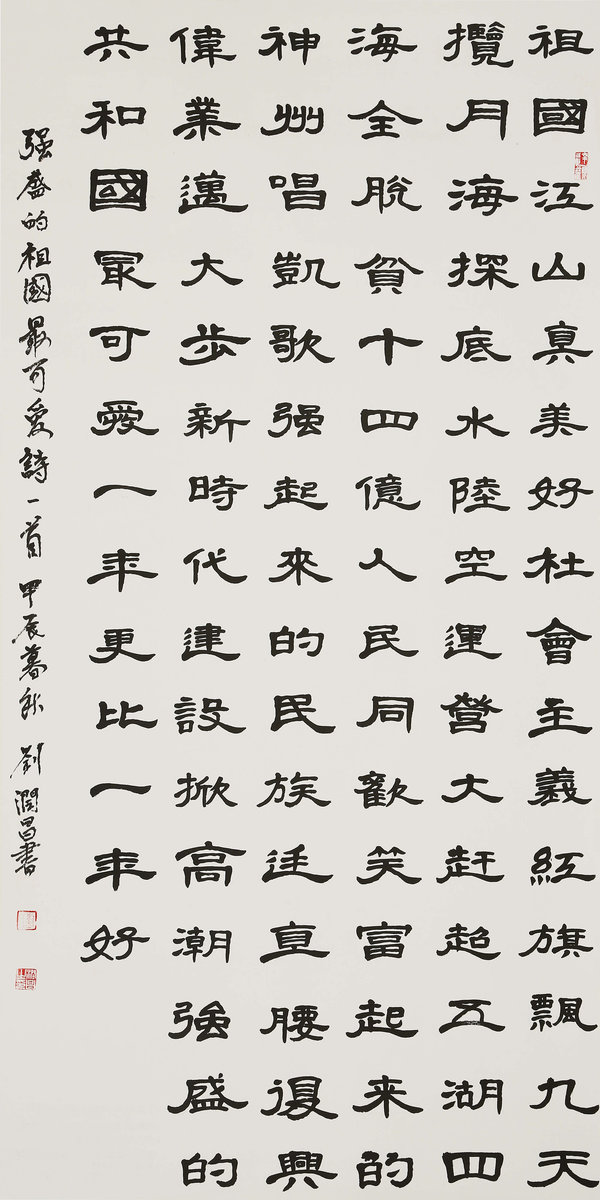 祖國江山真美好社會主義紅旗飄九天
攬月海探底水陸空運營大赶超五湖四
海全脫貧十四億人民同歡笑富起来的
神州唱凱歌强起來的民族廷直腰復興
偉業邁大步新時代建設掀高潮強盛的
共和國最可愛一年更比一年好
强盛的祖國最可愛詩一首 甲辰暮秋 劉潤昌書